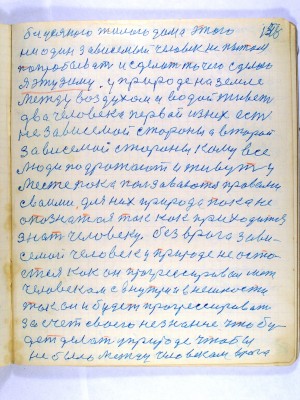 158
бихяного жилого дома этого
ни один зависемый человек не пытом
попробывать и сделать то чего сделать
Я этуединиу. у природе на земле
Между воздухом и водой живет
два человека первой изних есть
не зависемой стороны а второй
зависемой стороны. кому все
люди подрожают и живут у
месте пока ползаваются правами
своими. для них природа пока не
опознатоя так как приходится
знать человеку. без врага зави-
семой человек у природе не оста-
ется как он прогрессировал меж
человеком внутри и внешности
так он и будет прогрессировать
за счет своего незнание что бу-
дет делать у природе чтобы
не было между человеком врага